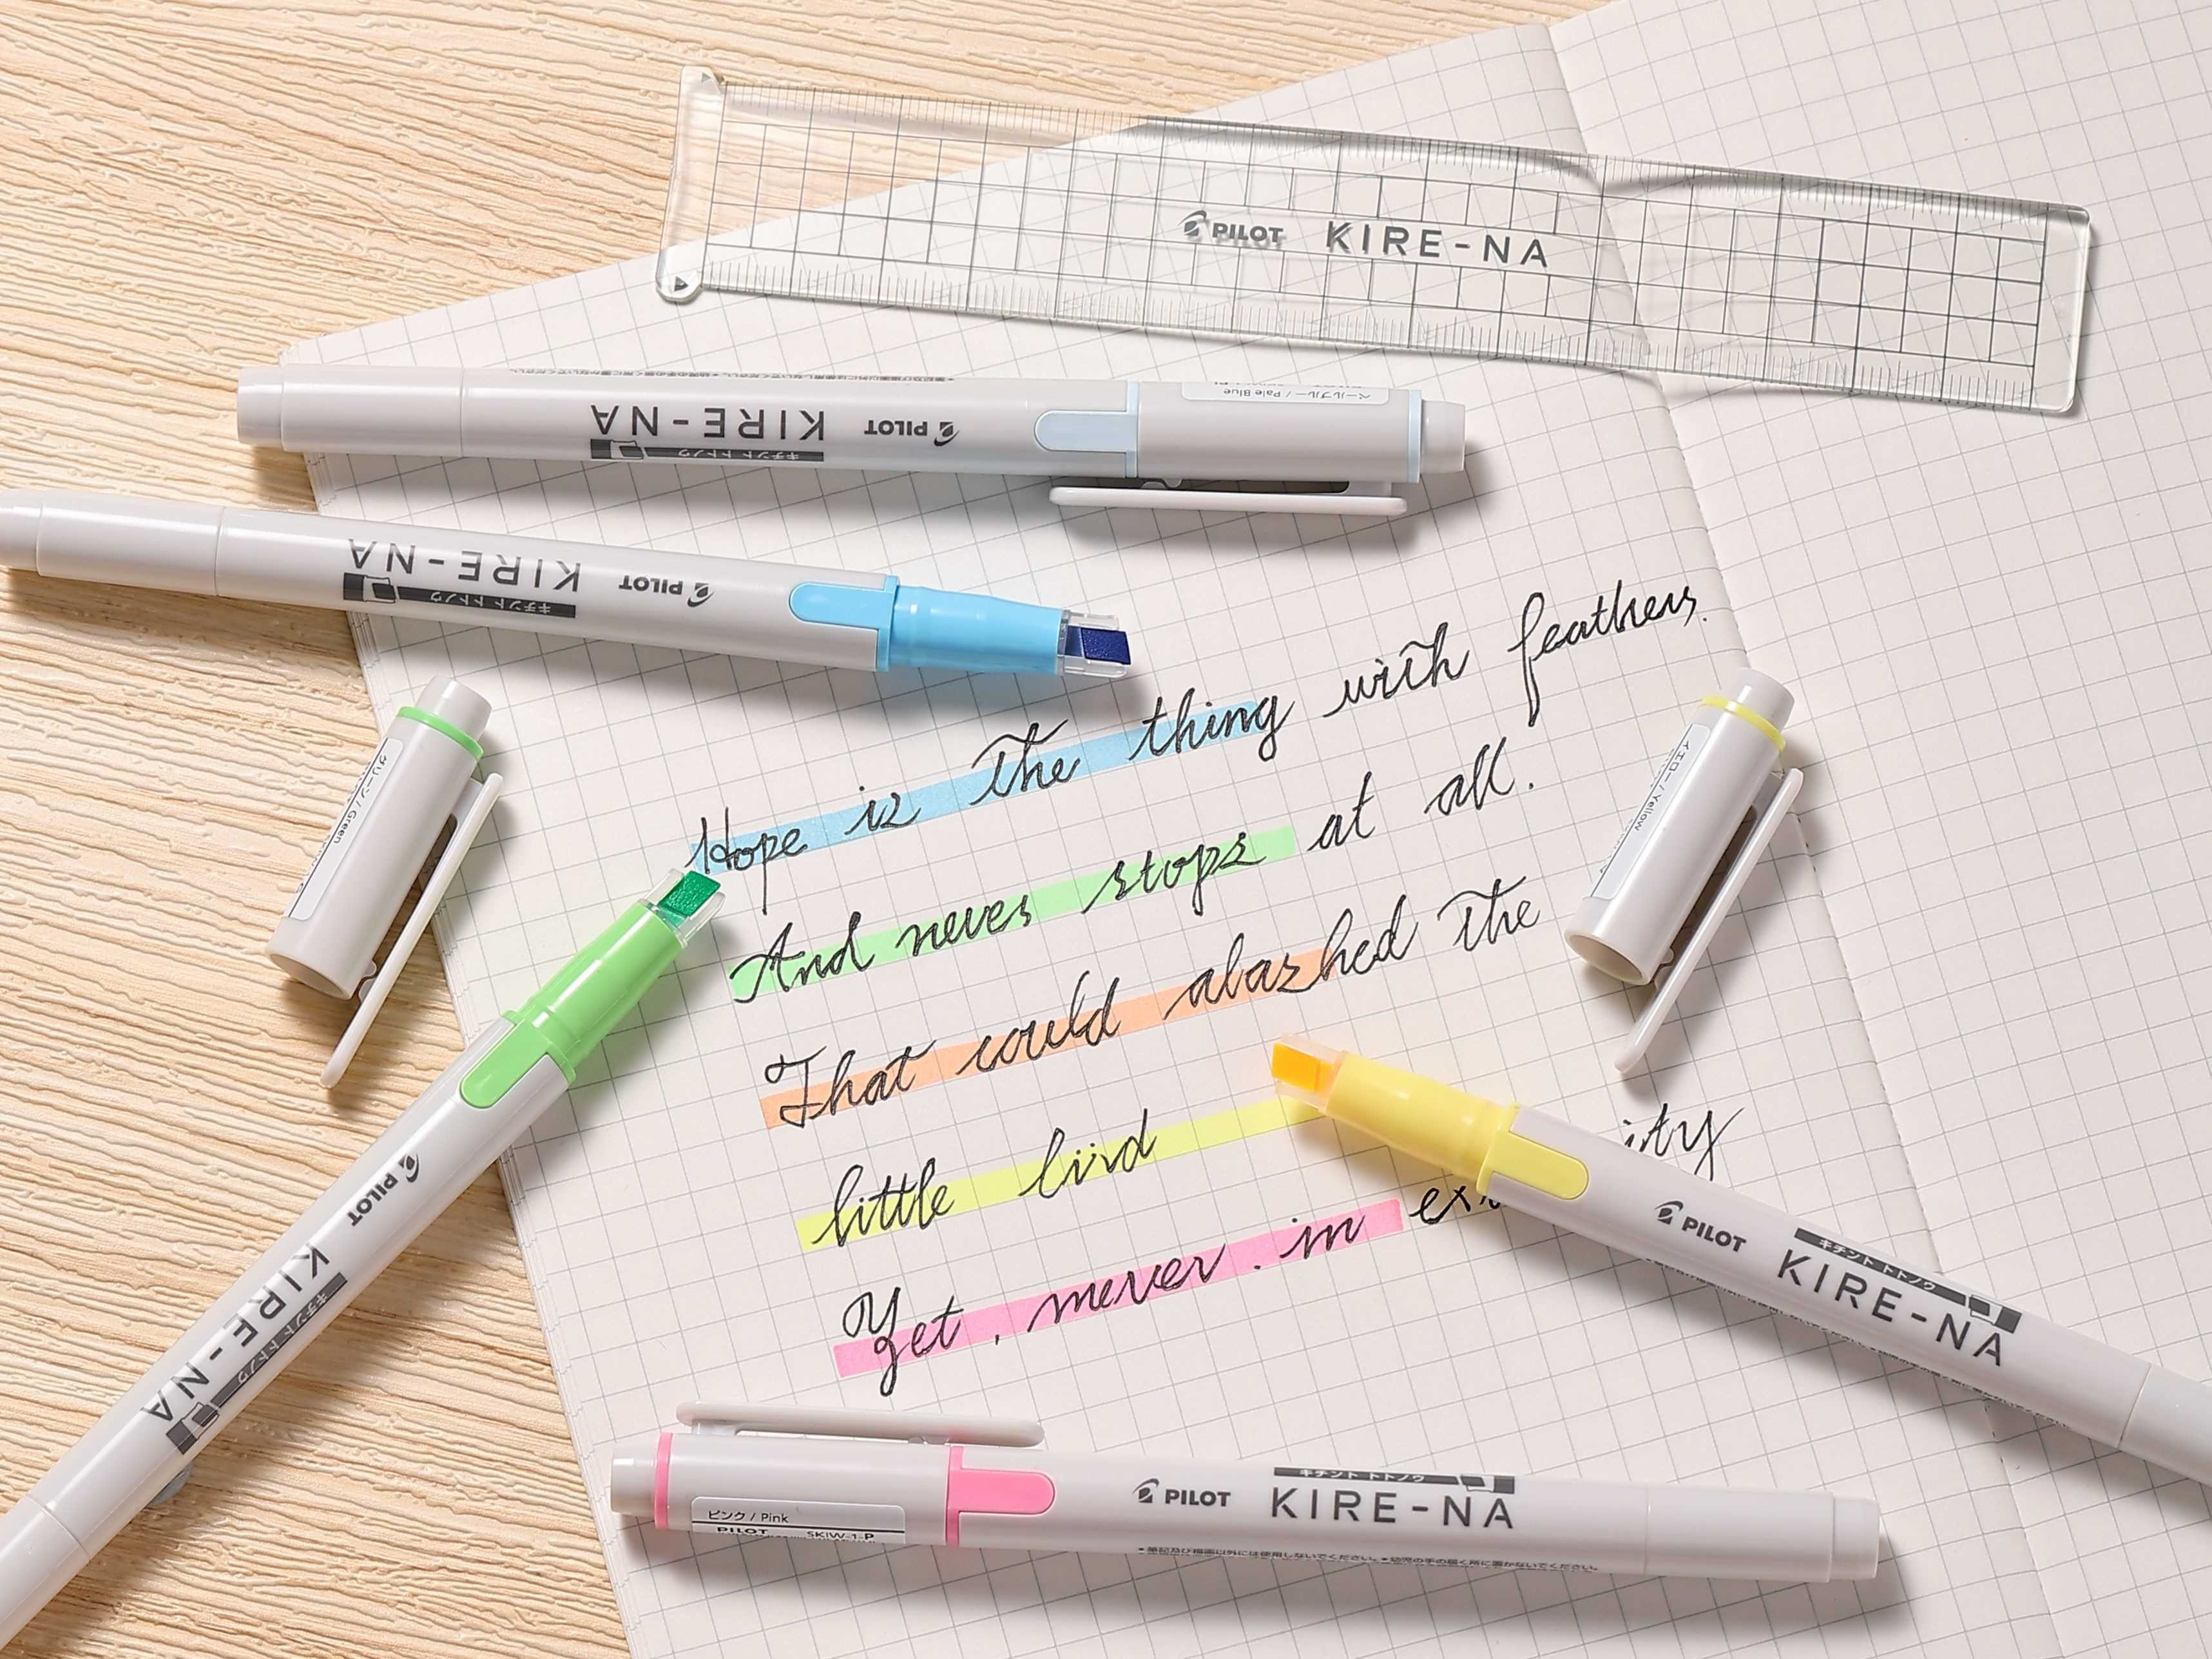 PILOT KIRE-NA
ペールブルー / Pale Blue
PILOT KIRE-NA
キチント トトノウ
PILOT KIRE-NA
キチント トトノウ
Hope is the thing with feathers.
グリーン / Green
イエロー / Yellow
And never stops at all.
That could abashed the
little bird
ity
Yet, never in
PILOT KIRE-NA
キチント トトノウ
PILOT KIRE-NA
キチント トトノウ
ピンク / Pink
PILOT SKIW-1-P
キチント トトノウ
PILOT KIRE-NA
•筆記及び描画以外には使用しないでください。•幼児の手の届く所に置かないでください。